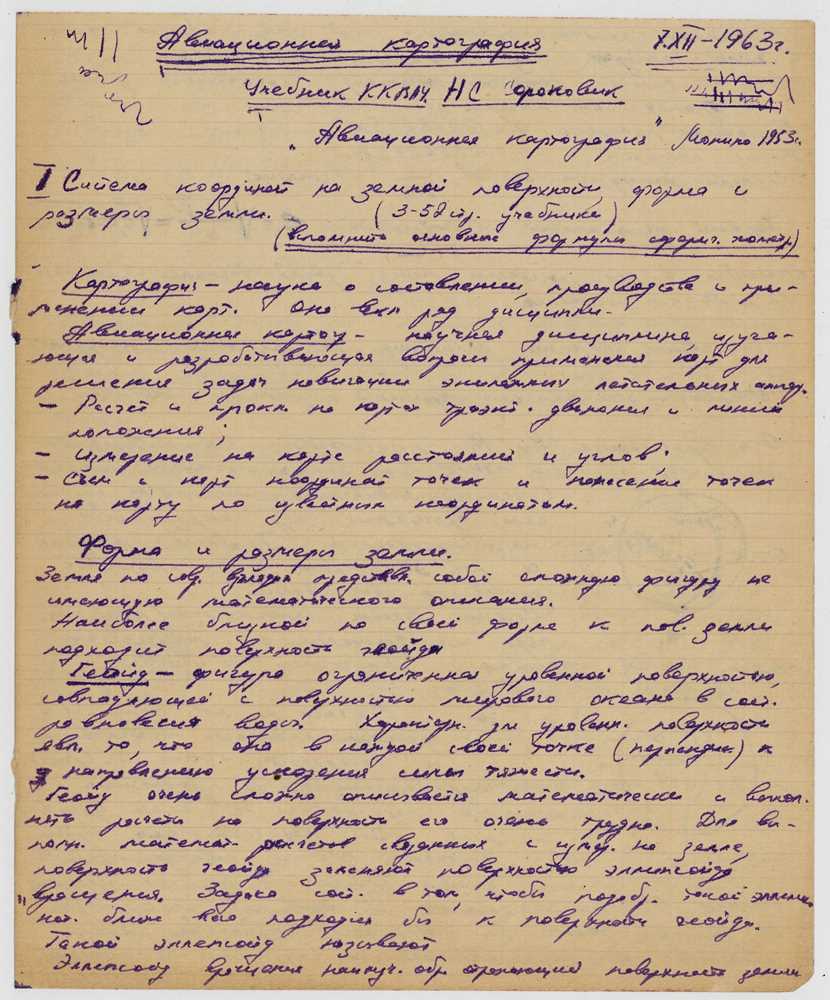 Авиационная картография 7.XII-1963г.
Учебник ККВИА НС
„Авиационная картография" Монино 1953г.
I Система координат на земной поверхности, форма и
размеры земли. (3-52 стр. учебника)
(вспомнить основные формулы сферич. )
Картография - наука о составлении, производстве и при-
менении карт. Она вкл ряд дисциплин.
Авиационная картогр - научная дисциплина, изуча-
ющая и разрабатывающая вопросы применения карт для
решения задач навигации летательных аппар.
- Расчет и прокл. на картах траект. движения и линий
положения;
- измерение на карте расстояний и углов;
- Съем с карт координат точек и нанесение точек
на карту по известным координатам.
Форма и размеры земли.
Земля по совр. взглядам представл. собой сложную фигуру не
имеющую математического описания.
Наиболее близкой по своей форме к пов. земли
подходит поверхность геойда
Геойд - фигура ограниченная уровенной поверхностью,
совпадающей с поверхностью мирового океана в сост.
равновесия воды. Характерн. эт уровенн. поверхности
явл. то, что она в каждой своей точке (перпендик.) к
направлению ускорения силы тяжести.
Геойд очень сложно описывается математически и выпол.
нять расчеты на поверхность его очень трудно. Для вы-
полн. математ. расчетов связанных с измер. на земле,
поверхность геойда заменяют поверхностью эллипсойда
вращения. Задача сост. в том, чтобы подобр. такой эллипс.
кот. ближе всего подходил бы к поверхности геойда.
Такой эллепсойд называют
Эллепсойд вращения наилуч. обр. отражающий поверхность земли